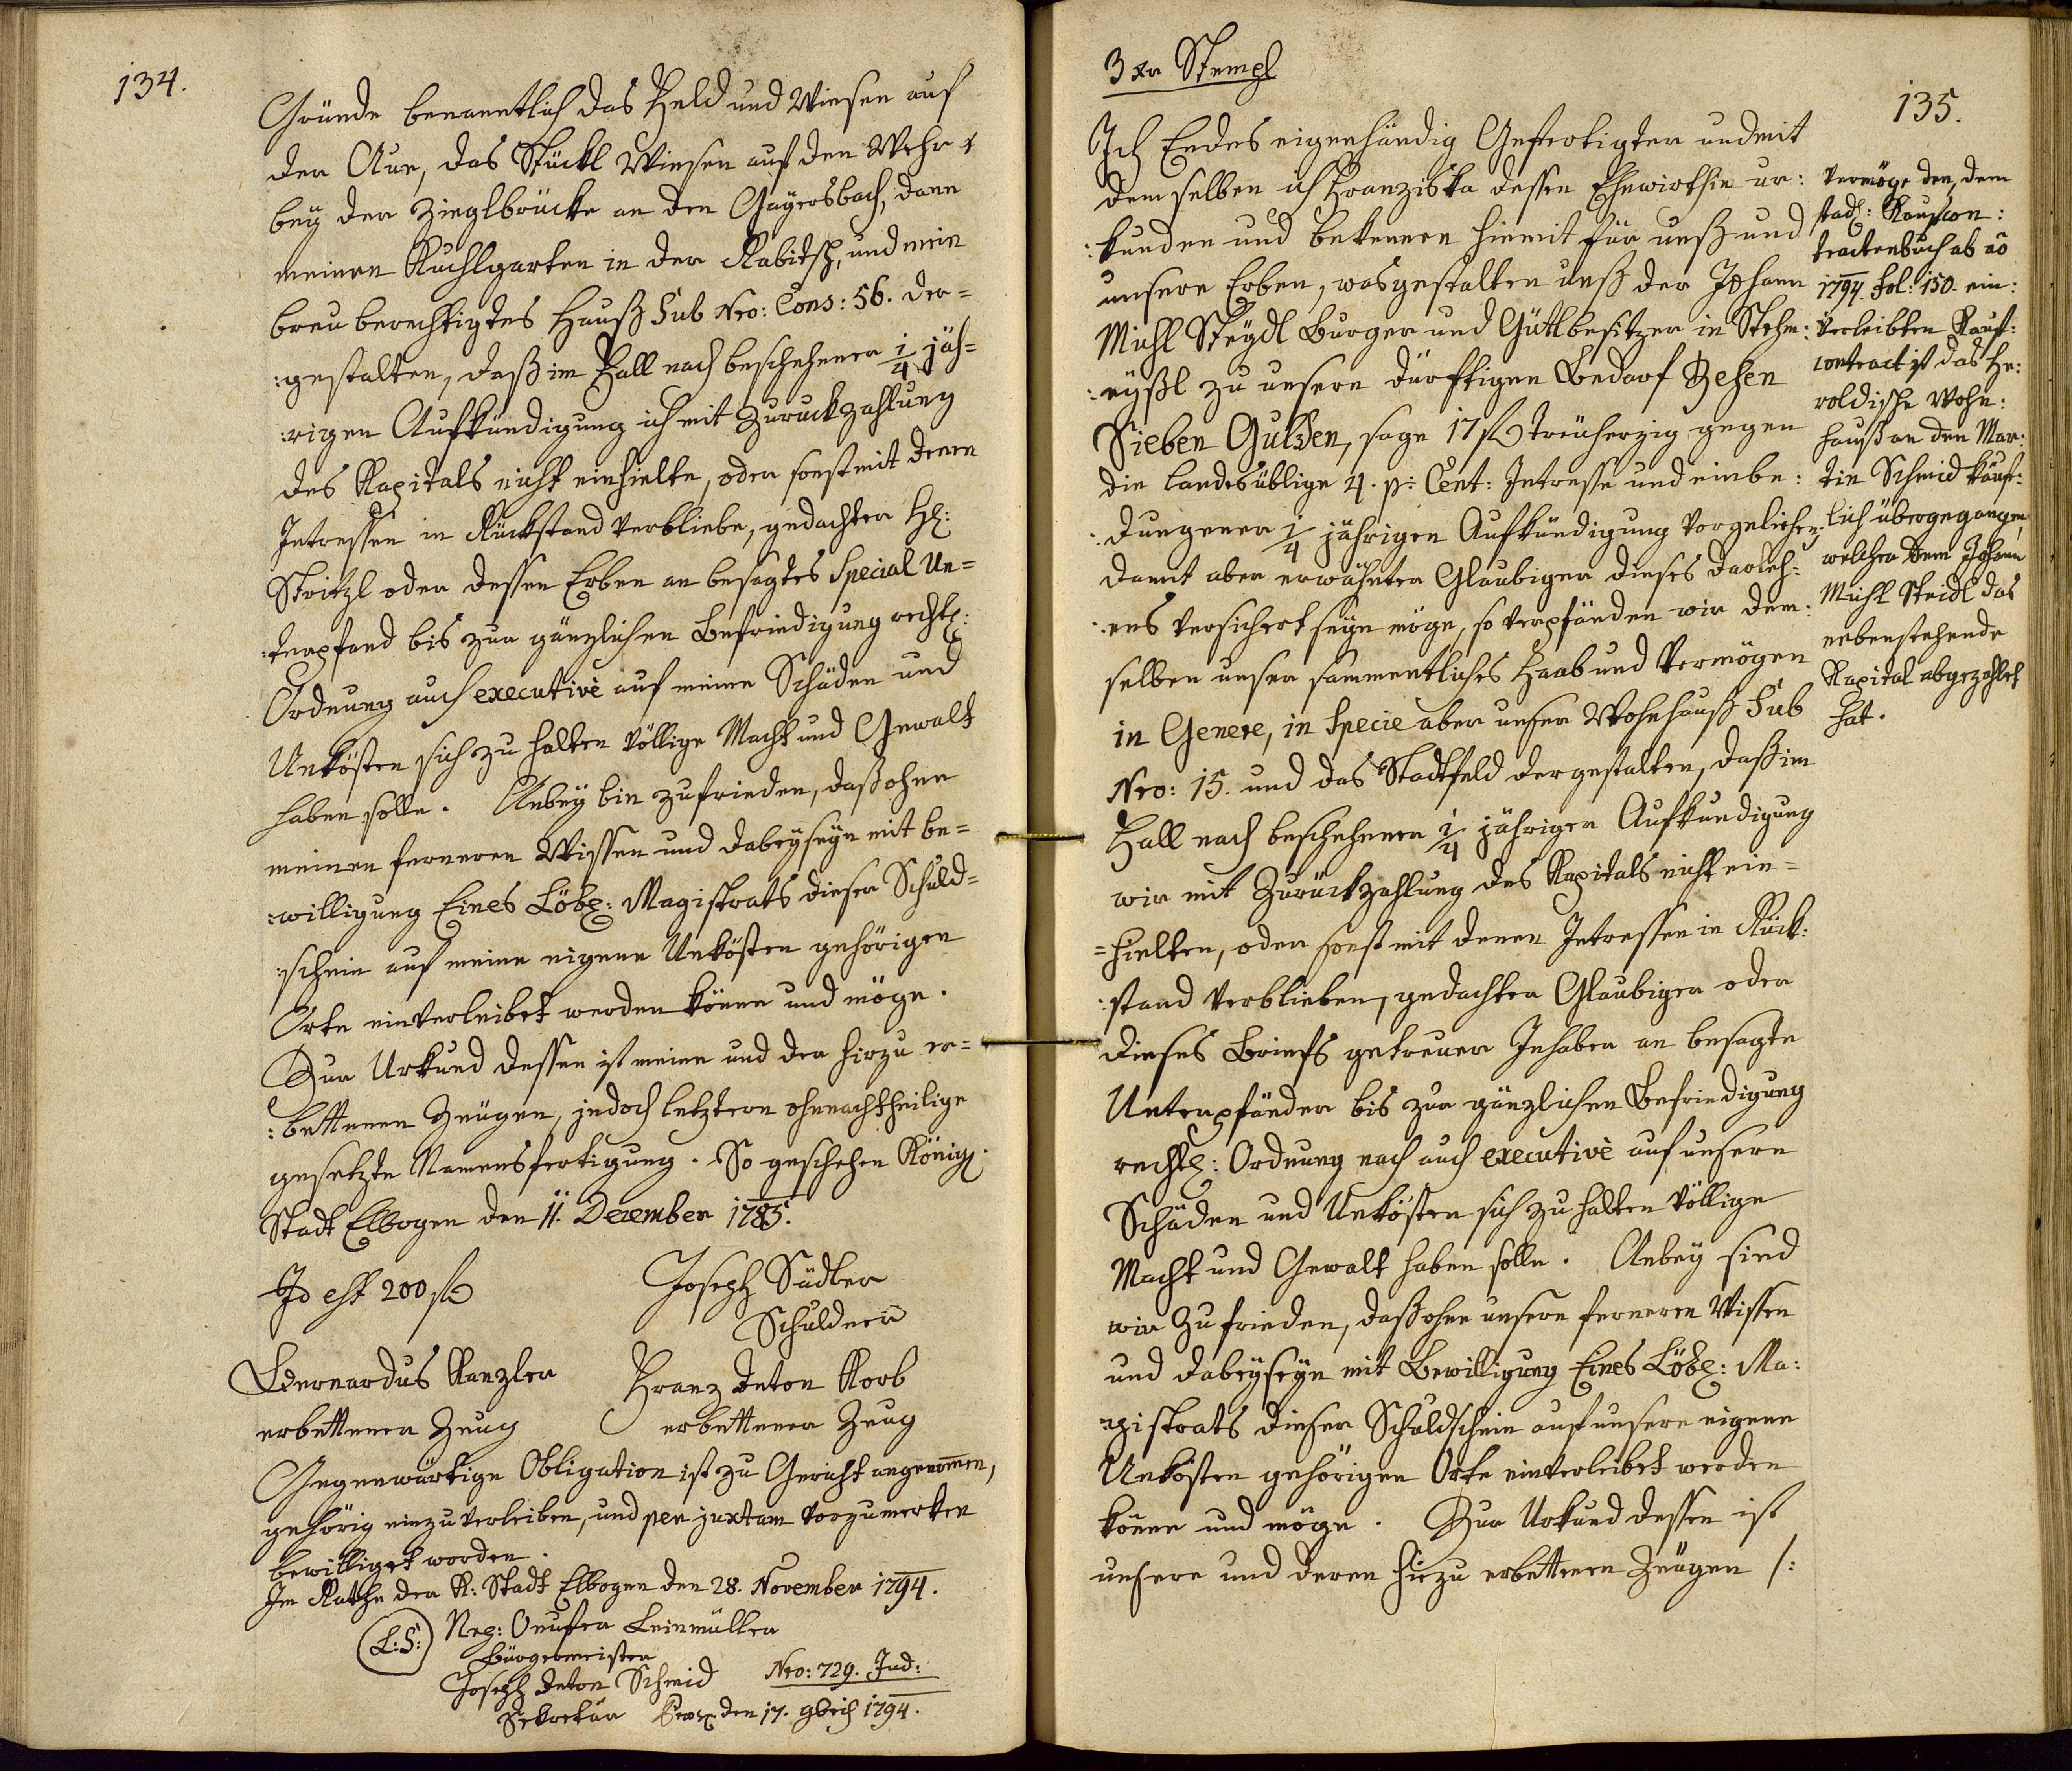 134.
Gründe benanntlich das Feld und Wiesen auf
der Aue, das Stückl Wiesen auf den Wehr
bey der Zieglbrücke an den Gaÿersbach, dann
meinen Kuchlgarten in der Rabitsch, und mein
breu berechtigtes Hauß Sub Nro: Cons: 56. der=
:gestalten, daß im Fall nach beschehener 1/4 jäh=
:rigen Aufkündigung ich mit Zuruckzahlung
des Kapitals nicht einhielte, oder sonst mit denen
Intressen in Rückstand verbliebe, gedachter H:
Stritzl oder dessen Erben an besagtes Special Un=
:terpfand bis zur gänzlichen Befriedigung rechtl:
Ordnung auch executivè auf meine Schäden und
Unkösten sich zu halten völlige Macht und Gewalt
haben solle. Anbeÿ bin zufrieden, daß ohne
meinen ferneren Wissen und dabeÿseÿn mit be=
:willigung Eines Löbl: Magistrats dieser Schuld=
:schein auf meine eigene Unkösten gehörigen
Orts einverleibet werden könne und möge.
Zur Urkund dessen ist meine und der hirzu er=
:bettenen Zeugen, jedoch letztern ohnnachtheilige
gesetzte Namensfertigung. So geschehen Königl:
Stadt Elbogen den 11. Dezember 1785.
Id est 200 f
Joseph Sadler
Schuldner
Bernardus Kanzler
Franz Anton Korb
erbettener Zeug
erbettener Zeug
Gegenwärtige Obligation ist zu Gericht angenommen,
gehörig einzuverleiben, und per juxtam vorzumerken
bewilliget worden.
Im Rathe der K: Stadt Elbogen den 28. November 1794.
L:S:
Neg: Onufer Leinmüller
Bürgermeister
Joseph Anton Schmid
Nro: 729. Ind:
Sekretär
den 17. 9bris 1794.
3 xr Stempl
135.
Ich Endes eigenhändig Gefertigter und mit
demselben ich Franziska dessen Ehewirthin ur:
:kunden und bekennen hiemit für unß und
unsere Erben, wasgestalten unß der Johann
Michl Steÿdl Burger und Gütlbesitzer in Stehm:
:eÿßl zu unsern dürftigen Bedarf Zehen
Sieben Gulden, sage 17 f treuherzig gegen
die landesüblige 4. p: Cent: Intresse und einbe:
:dungener 1/4 jährigen Aufkündigung vorgeliehen;
damit aber erwähnter Glaubiger dieses darleh:
:ens versichert seÿn möge, so verpfänden wir dem:
selben unser sammentliches Haab und Vermögen
in Genere, in Specie aber unser Wohnhauß Sub
Nro: 15. und das Stadtfeld dergestalten, daß im
Fall nach beschehener 1/4 jähriger Aufkundigung
wir mit Zurückzahlung des Kapitals nicht ein=
=hielten, oder sonst mit denen Intressen in Rück:
:stand verblieben, gedachter Glaubiger oder
dieses Briefs getreuer Inhaber an besagte
Unterpfänder bis zur gänzlichen Befriedigung
rechtl: Ordnung nach auch executivè auf unsere
Schäden und Unkösten sich zu halten völlige
Macht und Gewalt haben solle. Anbeÿ sind
wir zufrieden, daß ohne unsere ferneren Wissen
und dabeÿseÿn mit Bewilligung Eines Löbl: Ma:
:gistrats dieser Schuldschein auf unsere eigene
Unkösten gehörigen Orts einverleibet werden
könne und möge. Zur Urkund dessen ist
unsere und deren hirzu erbettenen Zeugen /:
Vermöge den, dem
stadt: Kaufcon:
tractenbuch ab ao
1794. fol: 150. ein:
verleibten Kauf:
contract ist das He:
roldische Wohn:
hauß an den Mar:
tin Schmid käuf:
lich übergegangen,
welcher dem Johann
Michl Steidl das
nebenstehende
Kapital abgezahlet
hat.